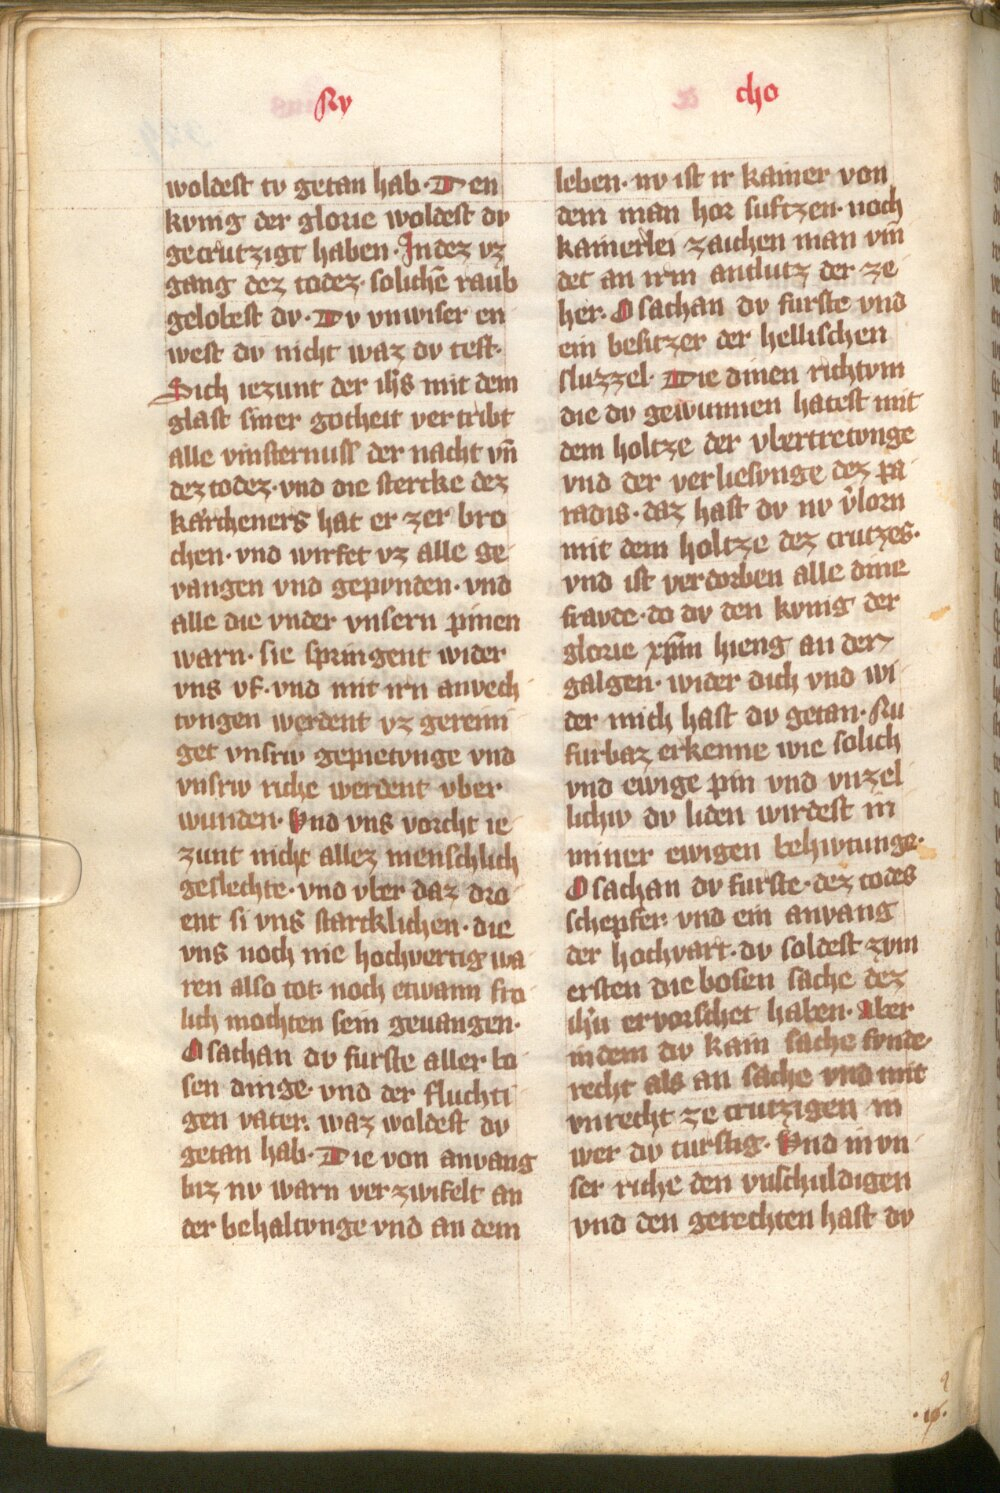 Ny
cho
woldest tv getan hab· Den
kvnig der glorie woldest dv
gecrutzigt haben· Jndez vz
gang dez todez· solichē raub
gelobest dv· Dv vnwiser en
west dv nicht waz dv test·
Sich iezunt der ih̄s mit dem
glast siner gotheit vertribt
alle vinsternuss der nacht vn̄
dez todez· vnd die stercke dez
karcheners hat er zer bro
chen· vnd wirfet vz alle ge
vangen vnd gepvnden· vnd
alle die vnder vnsern pinen
warn· sie springent wider
vns vf· vnd mit irn anvech
tvngen werdent vz gereini
get vnsriv gepietvnge vnd
vnsriv riche werdent vber
wunden· Vnd vns vorcht ie
zunt nicht allez menschlich
geslechte· vnd vber daz dro
ent si vns starcklichen· die
vns noch nie hochvertig wa
ren also tot· noch etwann fro
lich mochten sein gevangen·
O sathan dv furste aller bo
sen dinge· vnd der fluchti
gen vater· waz woldest dv
getan hab· Die von anvang
biz nv warn verzwifelt an
der behaltvnge vnd an dem
leben· nv ist ir kainer von
dem man hor suftzen· noch
kainerlei zaichen man vin
det an irm antlutz der ze
her· O sathan dv furste vnd
ein besitzer der hellischen
sluzzel· Die dinen richtvm
die dv gewunnen hatest mit
dem holtze der vbertretvnge
vnd der verliesvnge dez pa
radis· daz hast dv nv v̄lorn
mit dem holtze dez crutzes·
vnd ist verdorben alle dine
fravde· do dv den kvnig der
glorie xp̄m hieng an der
galgen· wider dich vnd wi
der mich hast dv getan· Nu
furbaz erkenne wie solich
vnd ewige pin vnd vnzel
lichiv dv liden wirdest in
miner ewigen behivtunge·
O sathan dv furste· dez todes
schepfer· vnd ein anvang
der hochvart· dv soldest zvm
ersten die bosen sache dez
ih̄u ervorschet haben· Aber
indem dv kain sache fvnde
recht als an sache vnd mit
vnrecht ze crutzigen in
wer dv turstig· Vnd in vn
ser riche den vnschuldigen
vnd den gerechten hast dv